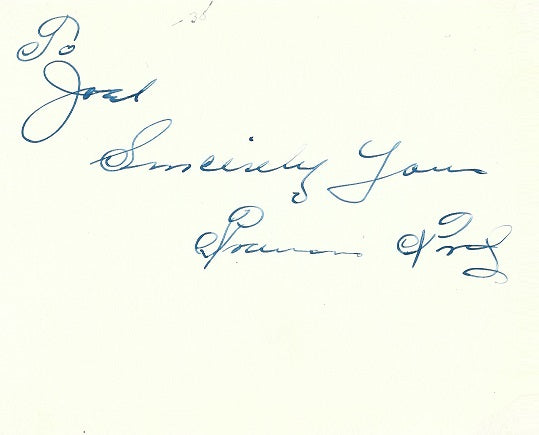 To
Joel
Sincerely Yours
Francis